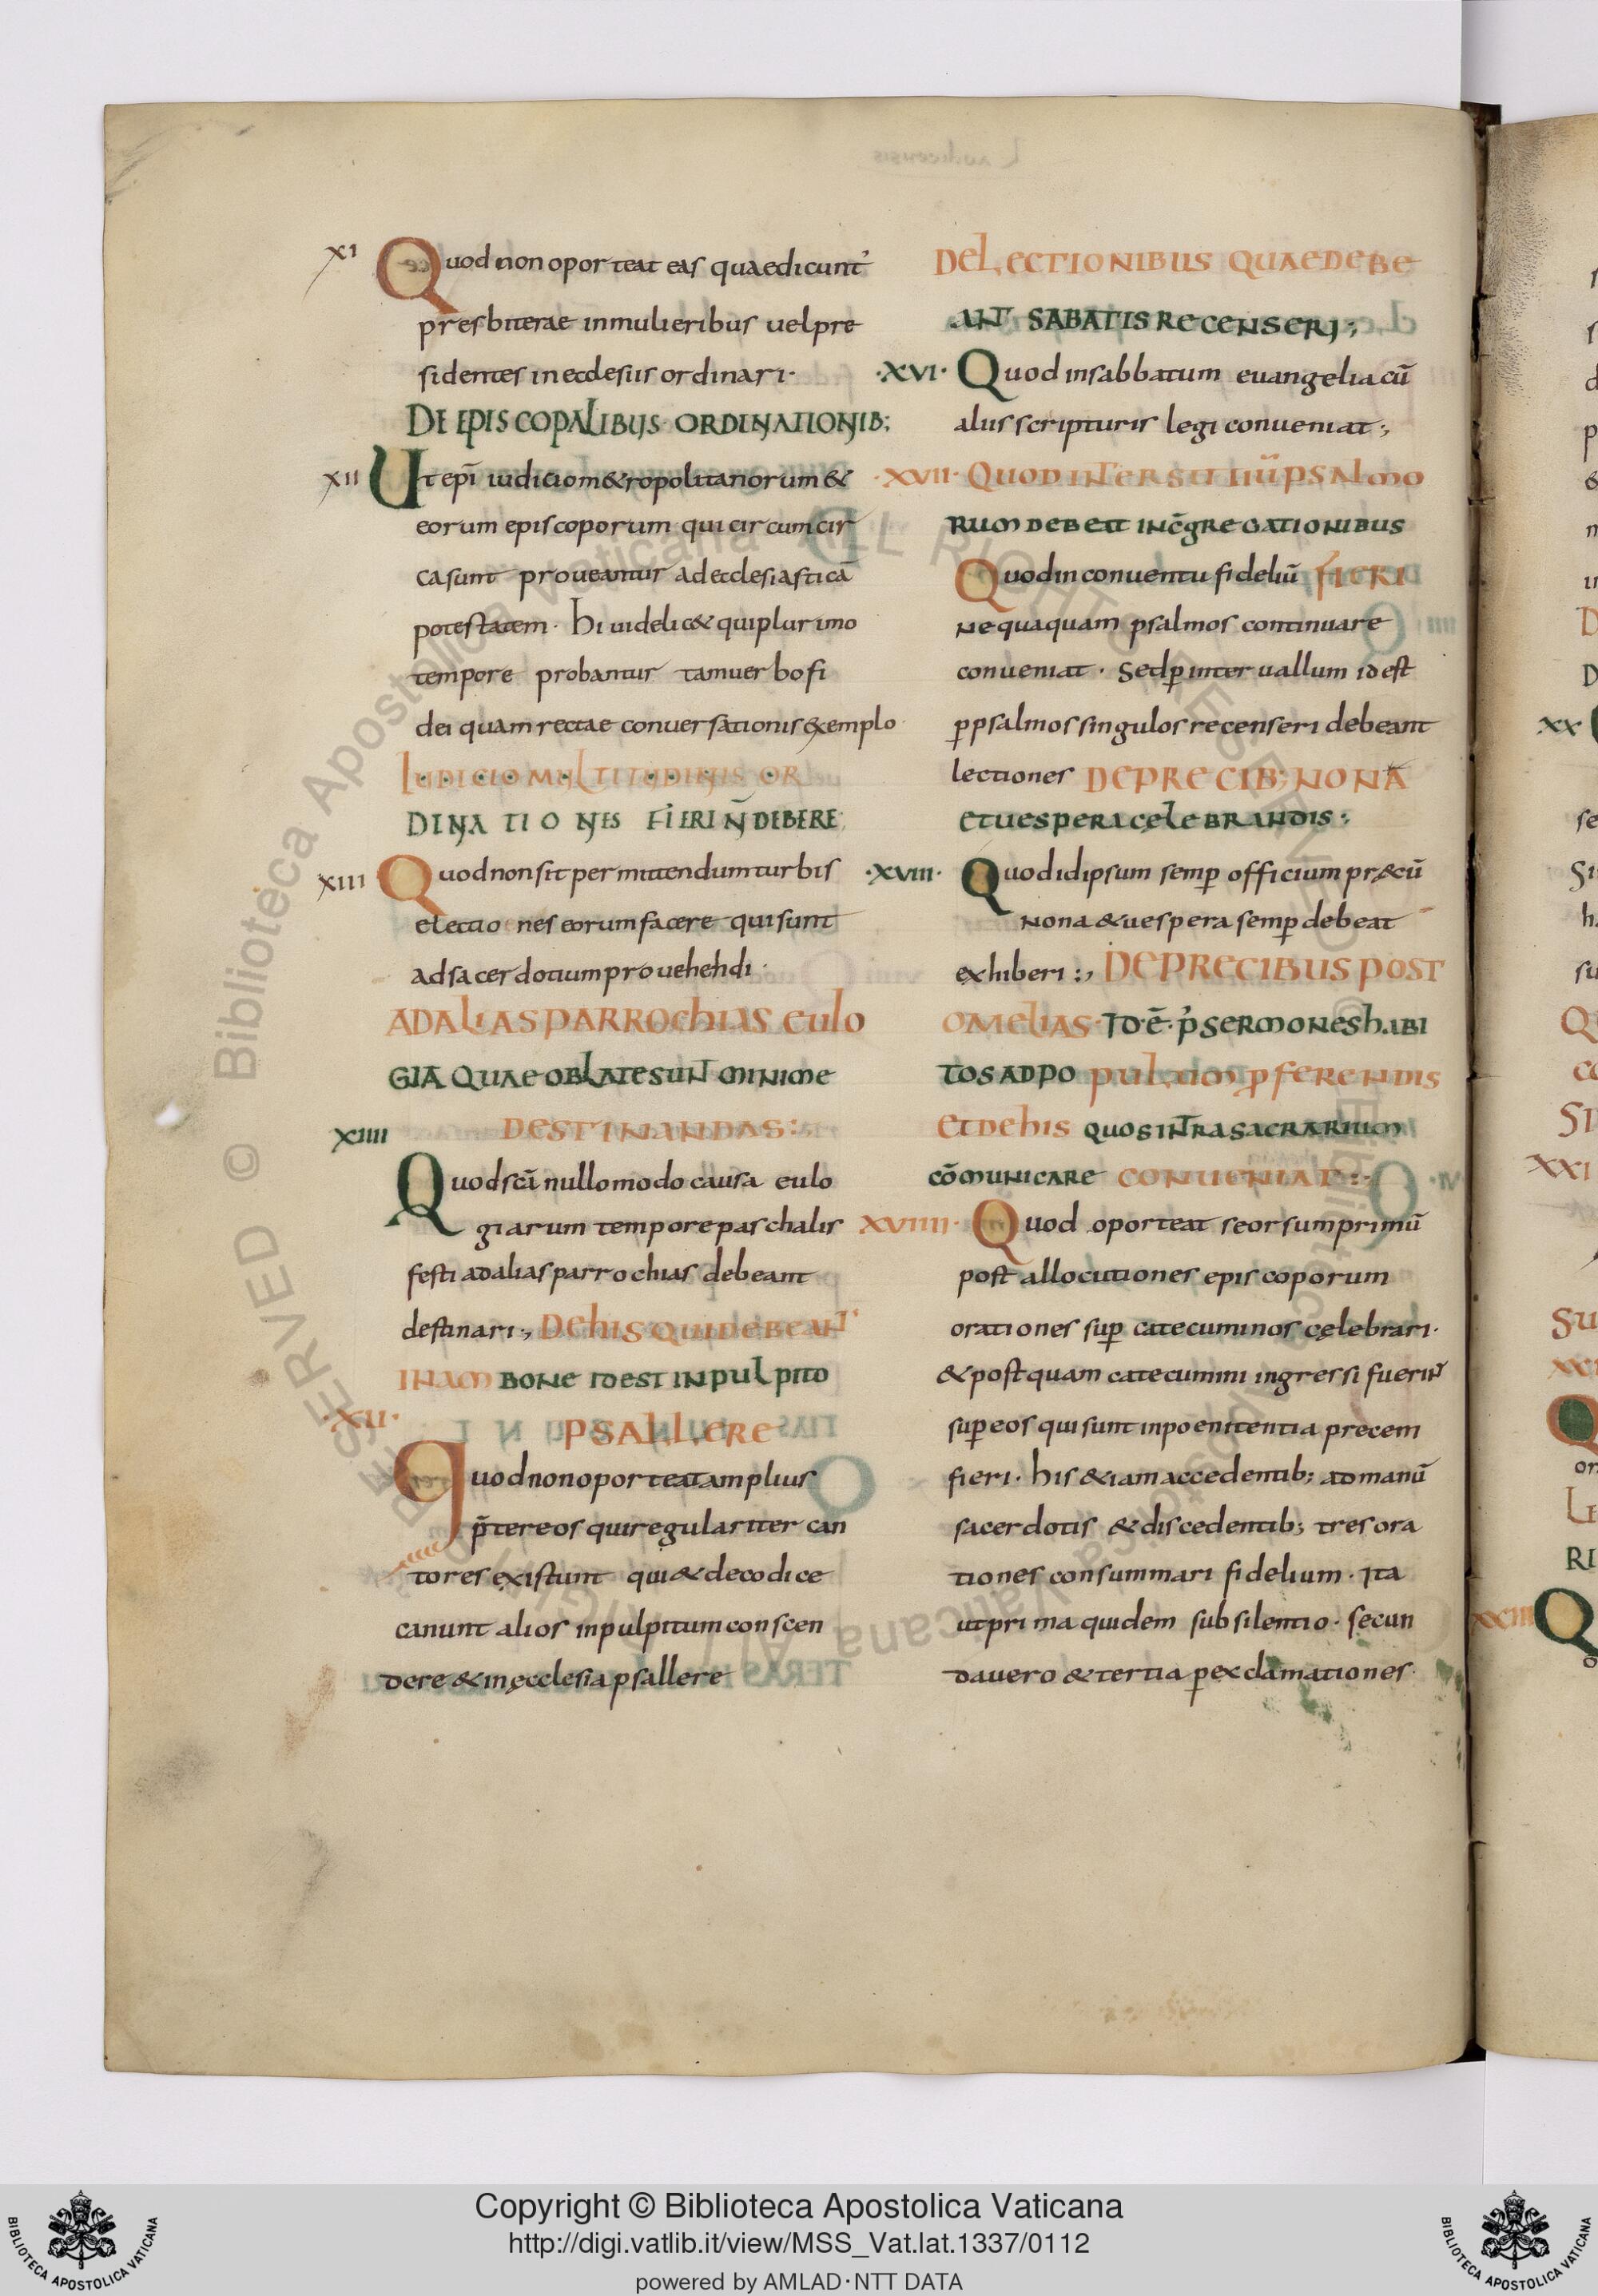 XI Quod non oporteat eas quae dicunt̉
presbiterae in mulieribus uel pre
sidentes in ecclesiis ordinari·
DE EPISCOPALIBUS ORDINATIONIB;
XII Ut ep̄i iudicio m&ropolitanorum &
eorum episcoporum qui circum cir
casunt proueantur ad ecclesiasticā
potestatem· hi uidelic& qui plurimo
tempore probantur tam uerbo fi
dei quam rectae conuersationis exemplo
IUDICIO MULTITUDINIS OR
DINATIONES FIERI N̄ DEBERE
XIII Quod non sit permittendum turbis
electiones eorum facere qui sunt
ad sacerdotium prouehehdi·
AD ALIAS PARROCHIAS EULO
GIA QUAE OBLATE SUNT MINIME
XIIII DESTINANDAS:
Quod sc̄a nullo modo causa eulo
giarum tempore paschalis
festi ad alias parrochias debeant
destinari:, DE HIS QUI DEBEANT
IN AMBONE ID EST IN PULPITO
·XU· PSALLERE
Quod non oporteat amplius
p̄ter eos qui regulariter can
tores existunt qui & de codice
canunt alios in pulpitum conscen
dere & in ęcclesia psallere
DE LECTIONIBUS QUAE DEBE
ANT SABATIS RECENSERI;
·XVI· Quod in sabbatum euangelia cū
aliis scripturis legi conueniat;
·XVII· QUOD INTERSITIIŪ PSALMO
RUM DEBEAT IN CŌGREGATIONIBUS
Quod in conuentu fideliū FIERI
nequaquam psalmos continuare
conueniat· Sed p̱ interuallum id est
p̱ psalmos singulos recenseri debeant
lectiones DE PRECIB; NONA
ET UESPERA CĘLEBRANDIS:
·XVIII· Quod id ipsum semp̱ officium pręcū
nona & uespera semp̱ debeat
exhiberi:, DE PRECIBUS POST
OMELIAS· ID·Ē· P̉ SERMONES HABI
TOS AD POPULUM P̱FERENDIS
ET DE HIS QUOS INTRA SACRARIUM
CŌMUNICARE CONUENIAT:·
XVIIII· Quod oporteat seorsum primū
post allocutiones episcoporum
orationes sup̱ catecuminos cęlebrari·
& postquam catecumini ingressi fuerint̉
sup̱ eos qui sunt in poenitentia precem
fieri· his & iam accedentib; ad manū
sacerdotis & discedentib; tres ora
tiones consummari fidelium· Ita
ut prima quidem sub silentio· secun
da uero & tertia p̱ exclamationes·
XX
XXI
XXIII
Copyright © Biblioteca Apostolica Vaticana
http://digi.vatlib.it/view/MSS_Vat.lat.1337/0112
powered by AMLAD·NTT DATA
BIBLIOTECA APOSTOLICA VATICANA
BIBLIOTECA APOSTOLICA VATICANA